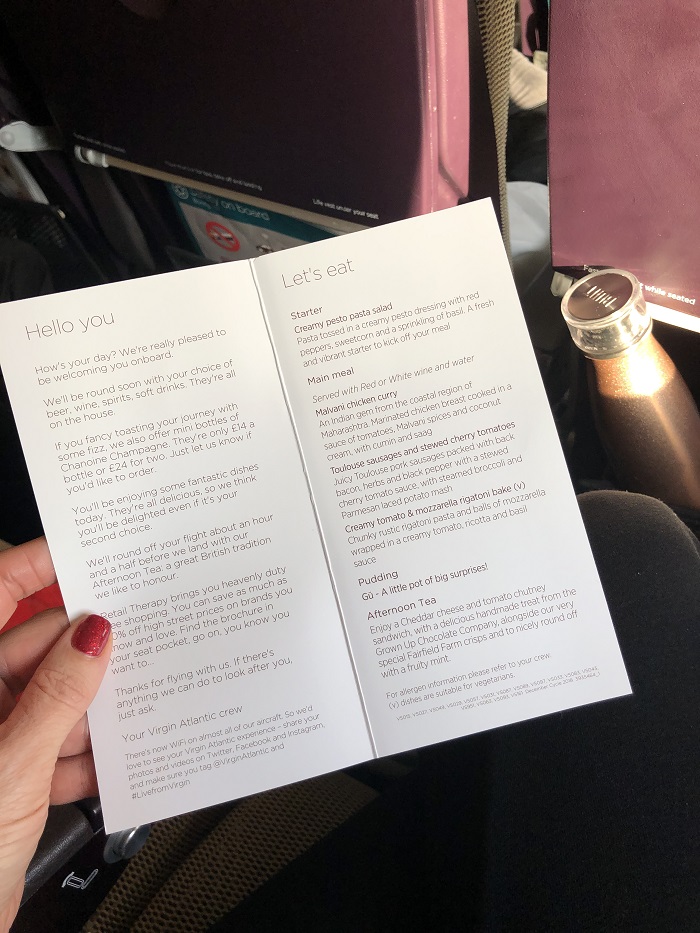 Life vest under your seat
on board
while seated
Hello you
How's your day? We're really pleased to
be welcoming you onboard.
We'll be round soon with your choice of
beer, wine, spirits, soft drinks. They're all
on the house.
If you fancy toasting your journey with
some fizz, we also offer mini bottles of
Chanoine Champagne. They're only £14 a
bottle or £24 for two. Just let us know if
you'd like to order.
You'll be enjoying some fantastic dishes
today. They're all delicious, so we think
you'll be delighted even if it's your
second choice.
We'll round off your flight about an hour
and a half before we land with our
Afternoon Tea: a great British tradition
we like to honour.
Retail Therapy brings you heavenly duty
shopping. You can save as much as
off high street prices on brands you
know and love. Find the brochure in
your seat pocket, go on, you know you
want to...
Thanks for flying with us. If there's
anything we can do to look after you,
just ask.
Your Virgin Atlantic crew
There's now WiFi on almost all of our aircraft. So we'd
love to see your Virgin Atlantic experience - share your
photos and videos on Twitter, Facebook and Instagram,
and make sure you tag @VirginAtlantic and
#LivefromVirgin
Let's eat
Starter
Creamy pesto pasta salad
Pasta tossed in a creamy pesto dressing with red
peppers, sweetcorn and a sprinkling of basil. A fresh
and vibrant starter to kick off your meal
Main meal
Served with Red or White wine and water
Malvani chicken curry
An Indian gem from the coastal region of
Maharashtra. Marinated chicken breast cooked in a
sauce of tomatoes, Malvani spices and coconut
cream, with cumin and saag
Toulouse sausages and stewed cherry tomatoes
Juicy Toulouse pork sausages packed with back
bacon, herbs and black pepper with a stewed
cherry tomato sauce, with steamed broccoli and
Parmesan laced potato mash
Creamy tomato & mozzarella rigatoni bake (v)
Chunky rustic rigatoni pasta and balls of mozzarella
wrapped in a creamy tomato, ricotta and basil
sauce
Pudding
Gü - A little pot of big surprises!
Afternoon Tea
Enjoy a Cheddar cheese and tomato chutney
sandwich, with a delicious handmade treat from the
Grown Up Chocolate Company, alongside our very
special Fairfield Farm crisps and to nicely round off
with a fruity mint.
For allergen information please refer to your crew.
(v) dishes are suitable for vegetarians.